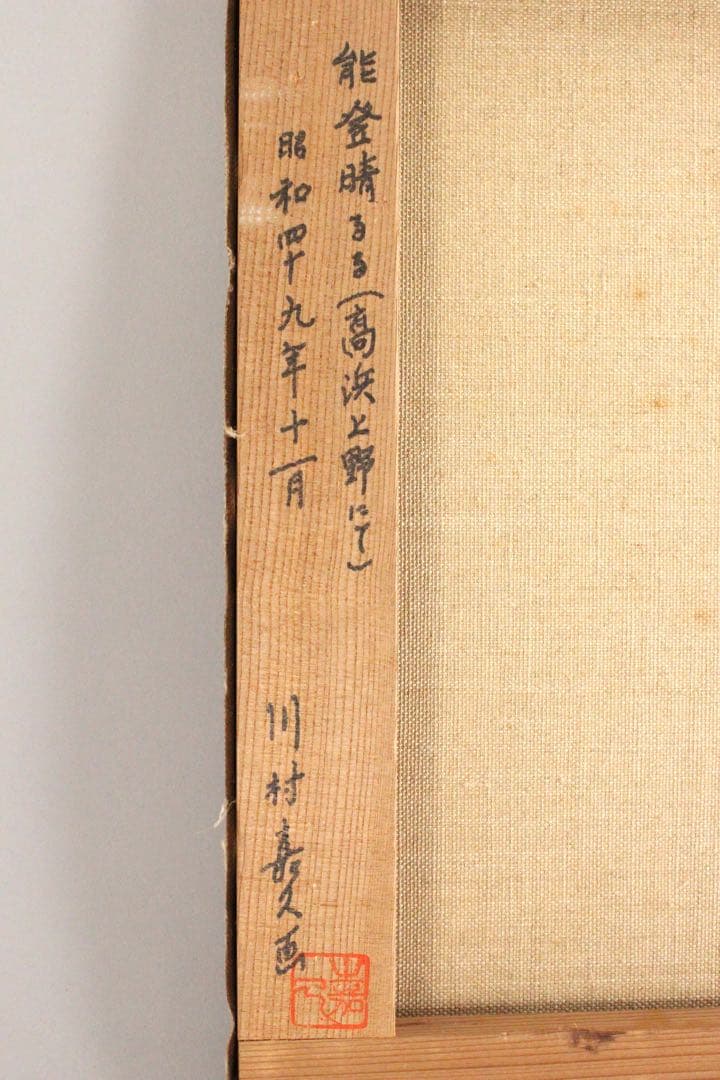 能登晴るる(高浜上野にて)
昭和四十九年十一月
川村嘉久画
嘉久